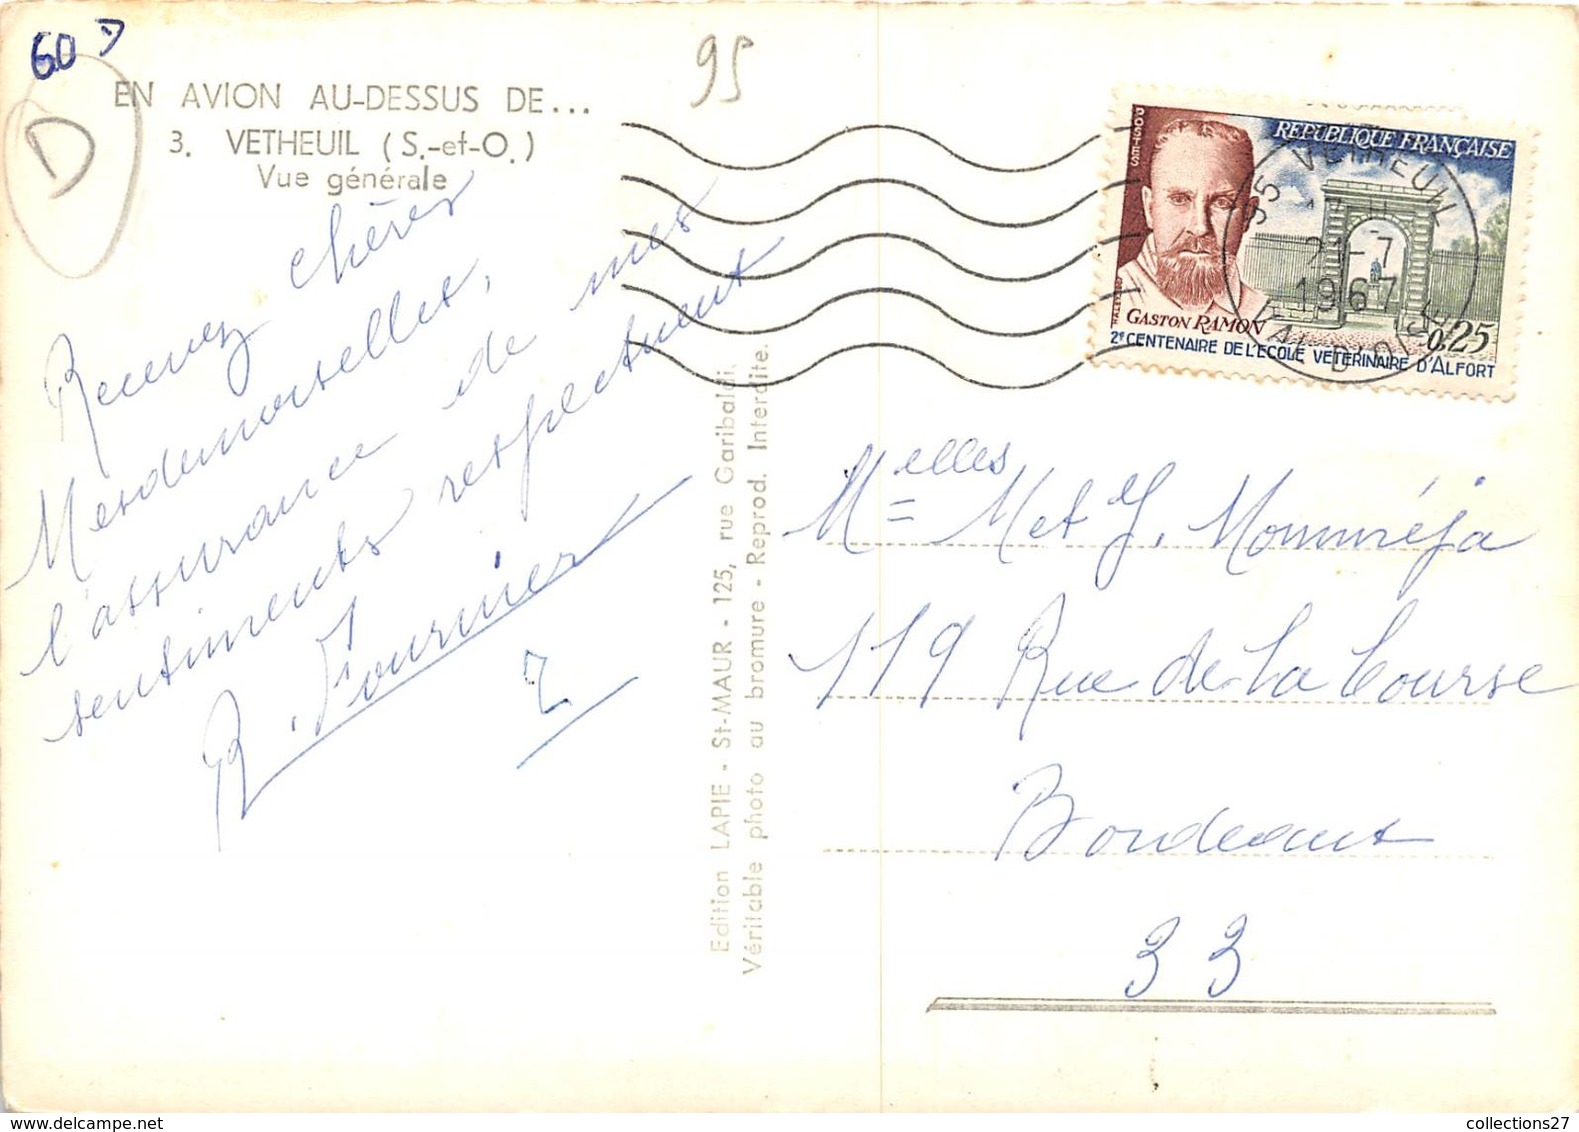 60 D
D
95
EN AVION AU-DESSUS DE...
3. VETHEUIL (S.-et-O.)
Vue générale
Recevez chères
Mesdemoiselles,
l'assurance de mes
sentiments respectueux
R. Fournier
Edition LAPIE - St-MAUR - 125, rue Garibaldi.
Véritable photo au bromure - Reprod. Interdite.
POSTES
REPUBLIQUE FRANÇAISE
GASTON RAMON
0,25
2e CENTENAIRE DE L'ECOLE VETERINAIRE D'ALFORT
95 VETHEUIL
21-7
1967
VAL D'OISE
Melles M et J. Mommréja
119 Rue de la Course
Bordeaux
33
collections27